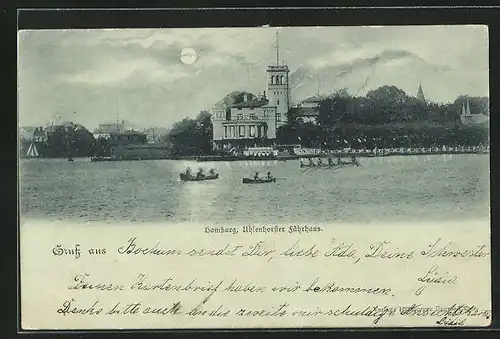 Hamburg. Uhlenhorster Fährhaus.
Gruß aus Bochum sendet Dir, liebe Ada, Deine Schwester
Lydia
Deinen Kartenbrief haben wir bekommen.
Denke bitte auch an die zweite mir schuldige Ansichtskarte
Lydia